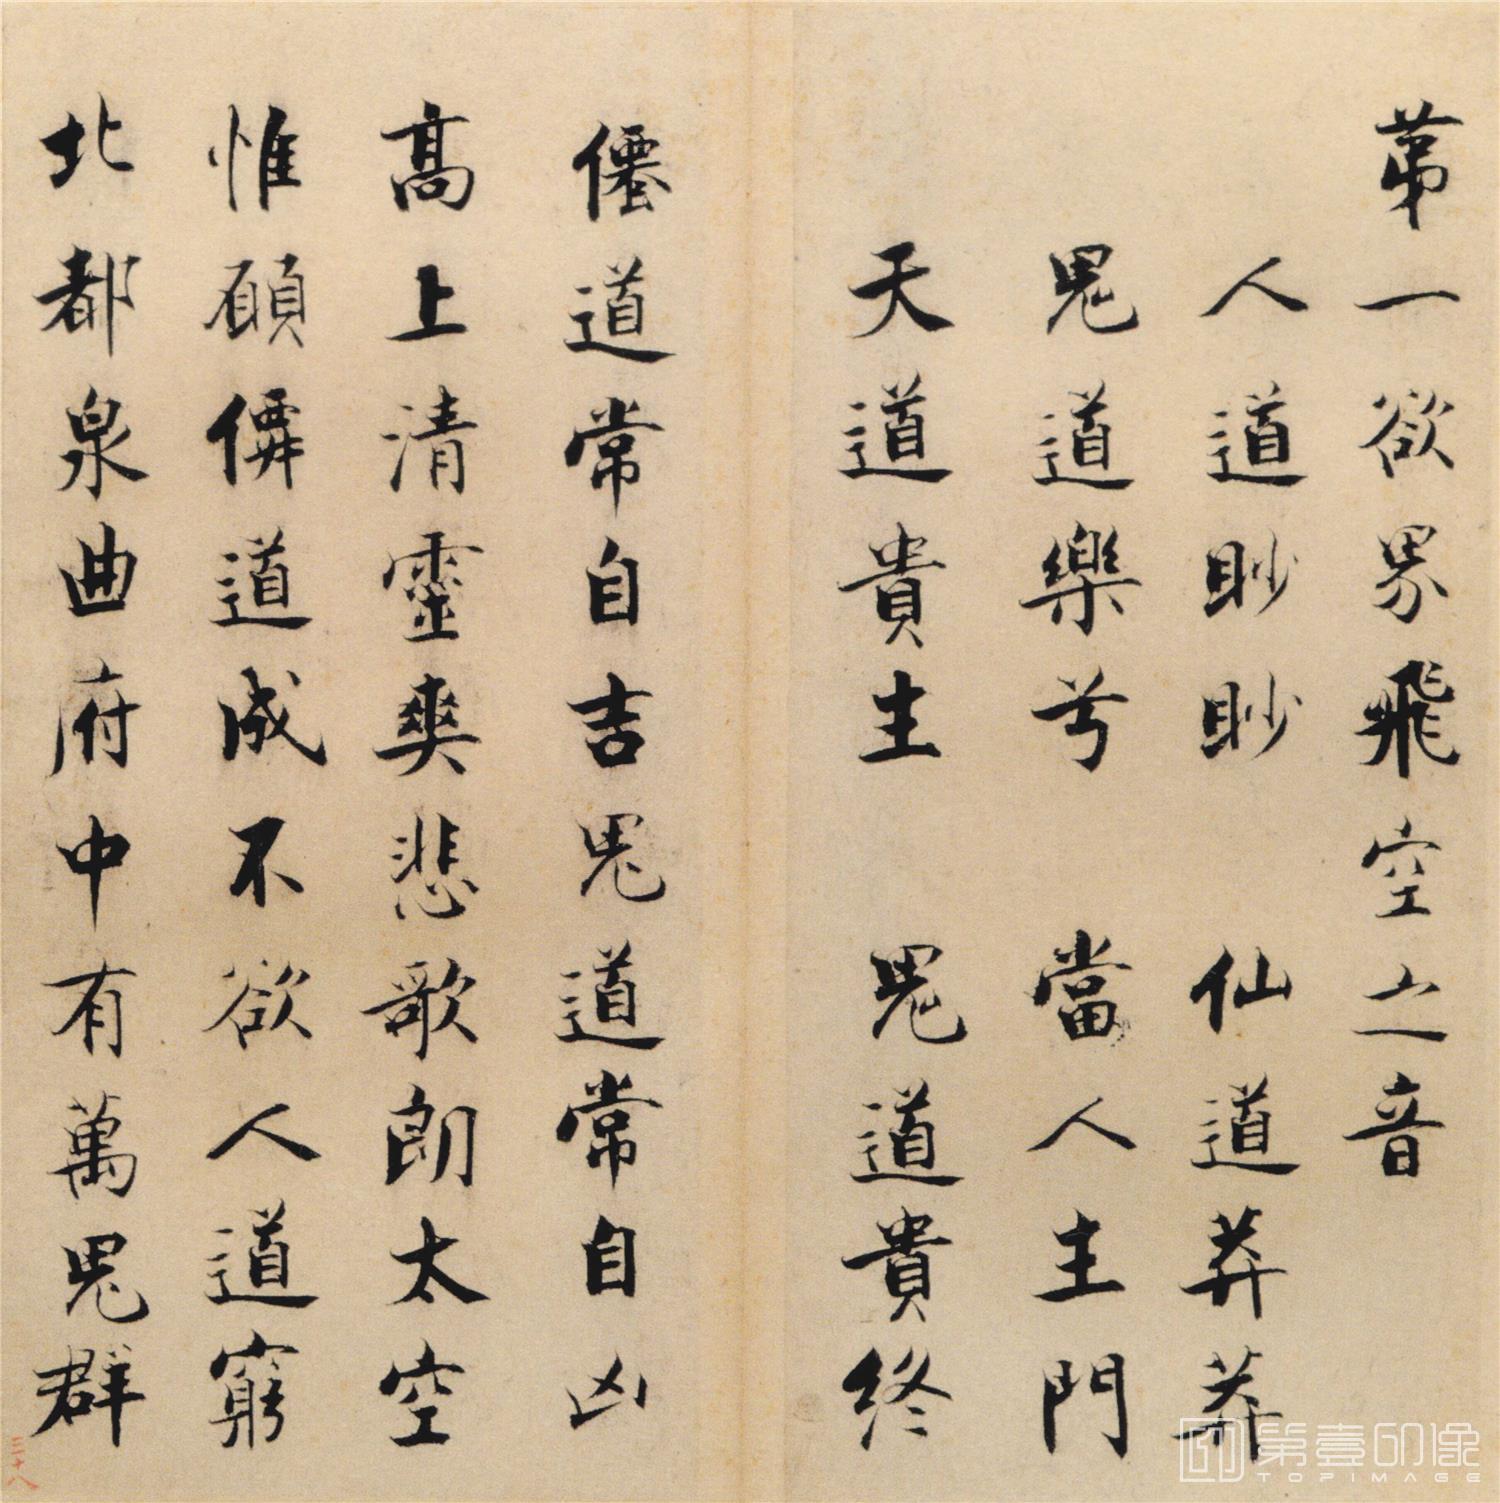 第一欲界飛空之音
人道眇眇 仙道莽莽
鬼道樂兮 當人生門
天道貴生 鬼道貴終
僊道常自吉鬼道常自凶
高上清靈爽悲歌朗太空
惟願僊道成不欲人道窮
北都泉曲府中有萬鬼群
三十八
第壹印像
TOPIMAGE